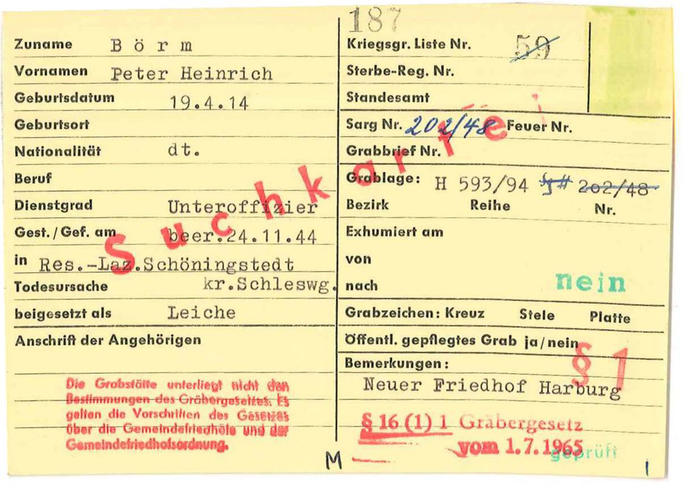 187
Zuname Börm
Vornamen Peter Heinrich
Geburtsdatum 19.4.14
Geburtsort
Nationalität dt.
Beruf
Dienstgrad Unteroffizier
Gest./Gef. am beer.24.11.44
in Res.-Laz.Schöningstedt
Todesursache kr.Schleswg.
beigesetzt als Leiche
Anschrift der Angehörigen
Die Grabstätte unterliegt nicht den
Bestimmungen des Gräbergesetzes. Es
gelten die Vorschriften des Gesetzes
über die Gemeindefriedhöfe und der
Gemeindefriedhofsordnung.
Suchkartei
Kriegsgr. Liste Nr. 59
Sterbe-Reg. Nr.
Standesamt
Sarg Nr. 202/48 Feuer Nr.
Grabbrief Nr.
Grablage: H 593/94 202/48
Bezirk Reihe Nr.
Exhumiert am
von
nach nein
Grabzeichen: Kreuz Stele Platte
Öffentl. gepflegtes Grab ja/nein
§ 1
Bemerkungen:
Neuer Friedhof Harburg
§ 16 (1) 1 Gräbergesetz
vom 1.7.1965
geprüft
M